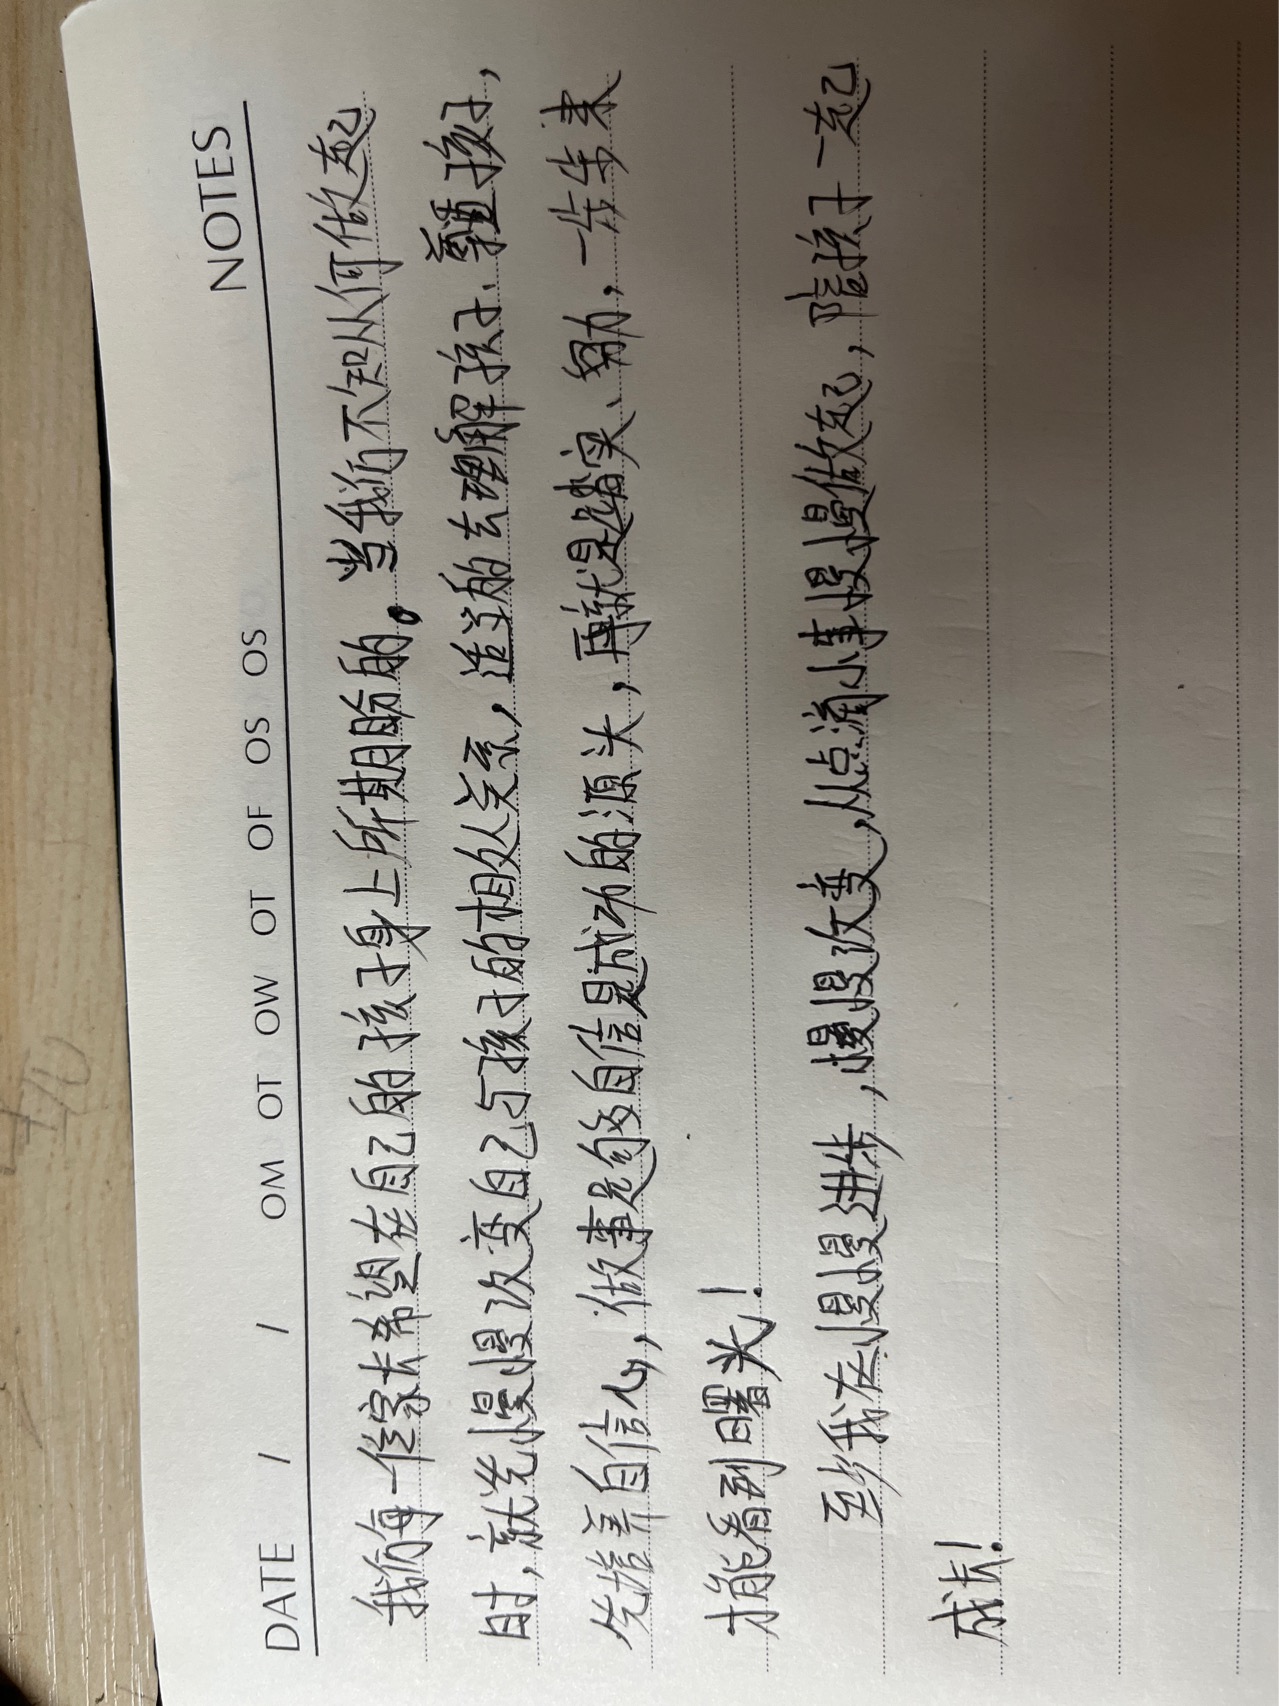 NOTES
DATE / / OM OT OW OT OF OS OS
我们每一位家长希望在自己的孩子身上所期盼的。当我们不知从何做起
时，就先慢慢改变自己与孩子的相处关系，适当的去理解孩子、尊重孩子，
先培养自信心，做事足够自信是成功的源头，再就是踏实、努力，一步步来
才能看到曙光！
至少我在慢慢进步，慢慢改变，从点滴小事慢慢做起，陪孩子一起
成长！